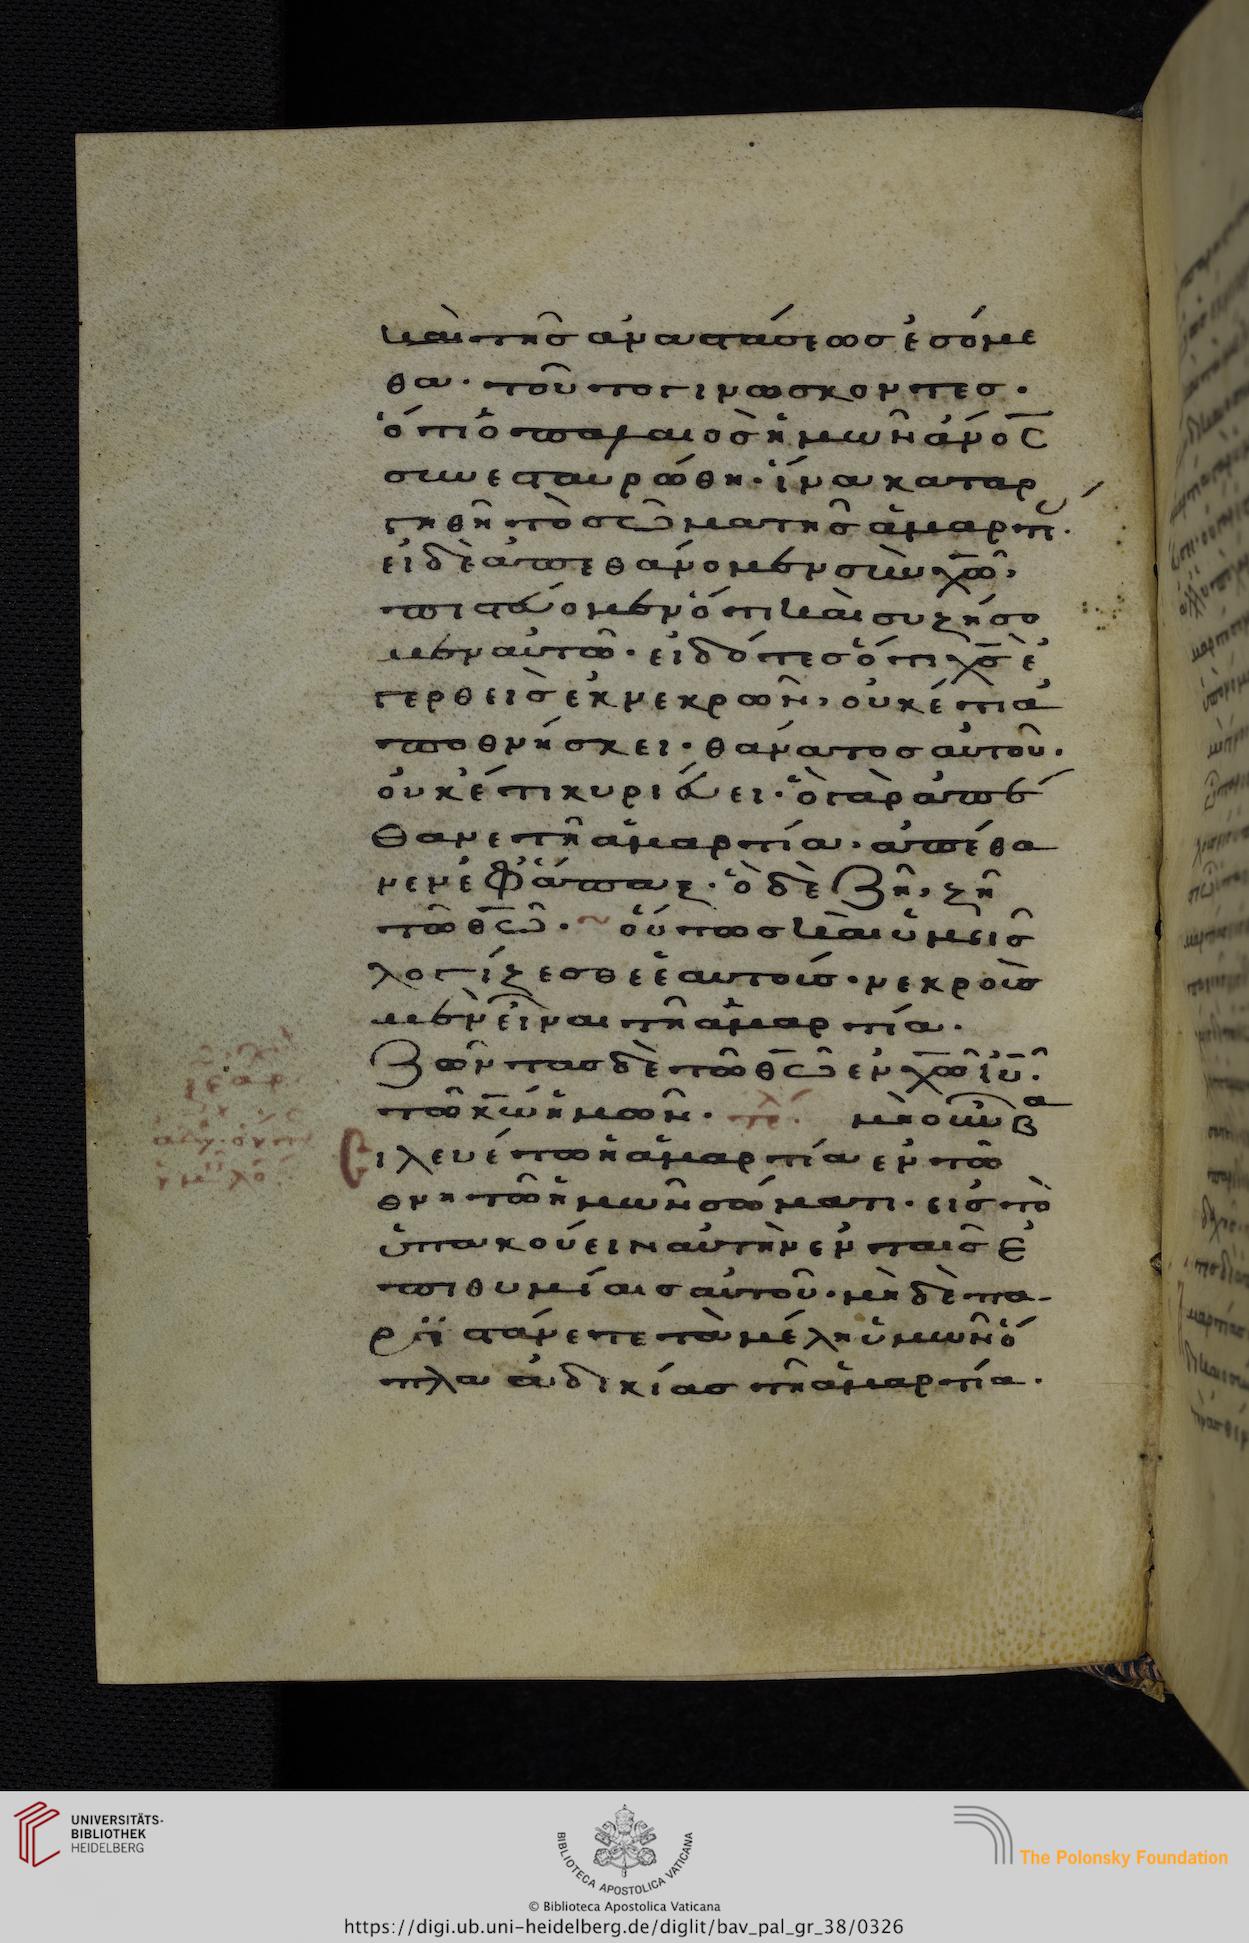 καὶ τῆς ἀναστάσεως ἐσόμε
θα· τοῦτο γινώσκοντες·
ὅτι ὁ παλαιὸς ἡμῶν ἄνος
συνεσταυρώθη· ἵνα καταρ
γηθῆ τὸ σῶμα τῆς ἁμαρτ·
εἰ δὲ ἀπεθάνομεν σὺν χῶ,
πιστεύομεν ὅτι καὶ συζήσο
μεν αὐτῶ· εἰδότες ὅτι χς ἐ
γερθεὶς ἐκ νεκρῶν, οὐκέτι ἀ
ποθνήσκει· θάνατος αὐτοῦ·
οὐκέτι κυριεύει· ὃ γὰρ ἀπέ
θανε τῆ ἁμαρτία· ἀπέθα
νεν ἐφάπαξ· ὃ δὲ ζῆ, ζῆ
τῶ θῶ· οὕτως καὶ ὑμεῖς
λογίζεσθε ἑαυτοὺς· νεκροὺς
μὲν εἶναι τῆ ἁμαρτία·
ζῶντας δὲ τῶ θῶ ἐν χῶ ἰῦ·
τῶ κω ἡμῶν· τέλ· μὴ οὖν βα
σιλευέτω ἡ ἁμαρτία ἐν τῶ
θνητῶ ἡμῶν σώματι· εἰς τὸ
ὑπακούειν αὐτὴν ἐν ταῖς ἐ
πιθυμίαις αὐτοῦ· μὴ δὲ πα-
ριστάνετε τὰ μέλη ὑμῶν ὅ
πλα ἀδικίας τῆ ἁμαρτία·
UNIVERSITÄTS-
BIBLIOTHEK
HEIDELBERG
BIBLIOTECA APOSTOLICA VATICANA
The Polonsky Foundation
© Biblioteca Apostolica Vaticana
https://digi.ub.uni-heidelberg.de/diglit/bav_pal_gr_38/0326